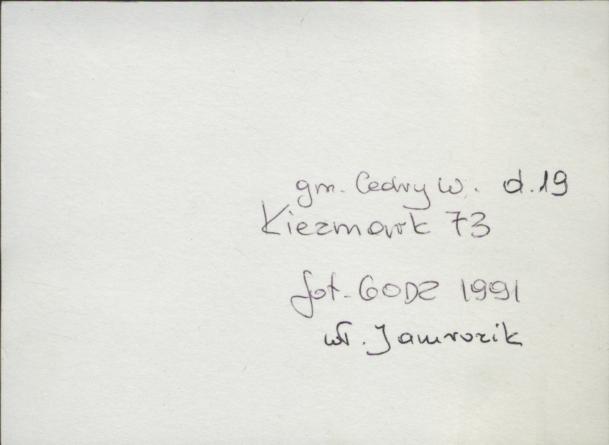 gm. Cedry W. d.19
Kiezmark 73
fot. GODZ 1991
wł. Jamrozik